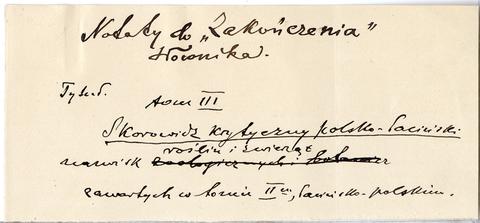 Notaty do „Zakończenia"
Słownika.
Tytuł.
tom III
Skorowidz krytyczny polsko-łaciński
roślin i zwierząt
nazwisk zoologicznych i
zawartych w tomie II m, łacińsko-polskim.